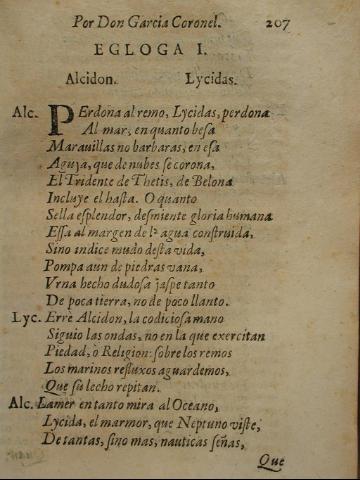 Por Don Garcia Coronel. 207
EGLOGA I.
Alcidon. Lycidas.
Alc. PErdona al remo, Lycidas, perdona
Al mar, en quanto besa
Marauillas no barbaras, en esa
Aguja, que de nubes se corona,
El Tridente de Thetis, de Belona
Incluye el hasta. O quanto
Sella esplendor, desmiente gloria humana
Essa al margen de la agua construida,
Sino indice mudo desta vida,
Pompa aun de piedras vana,
Vrna hecho dudosa jaspe tanto
De poca tierra, no de poco llanto.
Lyc. Erre Alcidon, la codiciosa mano
Siguio las ondas, no en la que exercitan
Piedad, o Religion: sobre los remos
Los marinos refluxos aguardemos,
Que su lecho repitan.
Alc. Lamer en tanto mira al Oceano,
Lycida, el marmor, que Neptuno viste,
De tantas, sino mas, nauticas señas,
Que